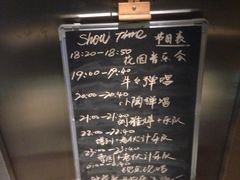 Show Time 节目表
18:20-18:50
花园音乐会
19:00-19:40
牛ㄠ弹唱
20:00-20:40
小陶弹唱
21:00-21:40
刘雅婷+乐队
22:00-22:40
+老伙计乐队
23:00-23:40
+老伙计乐队
弹唱